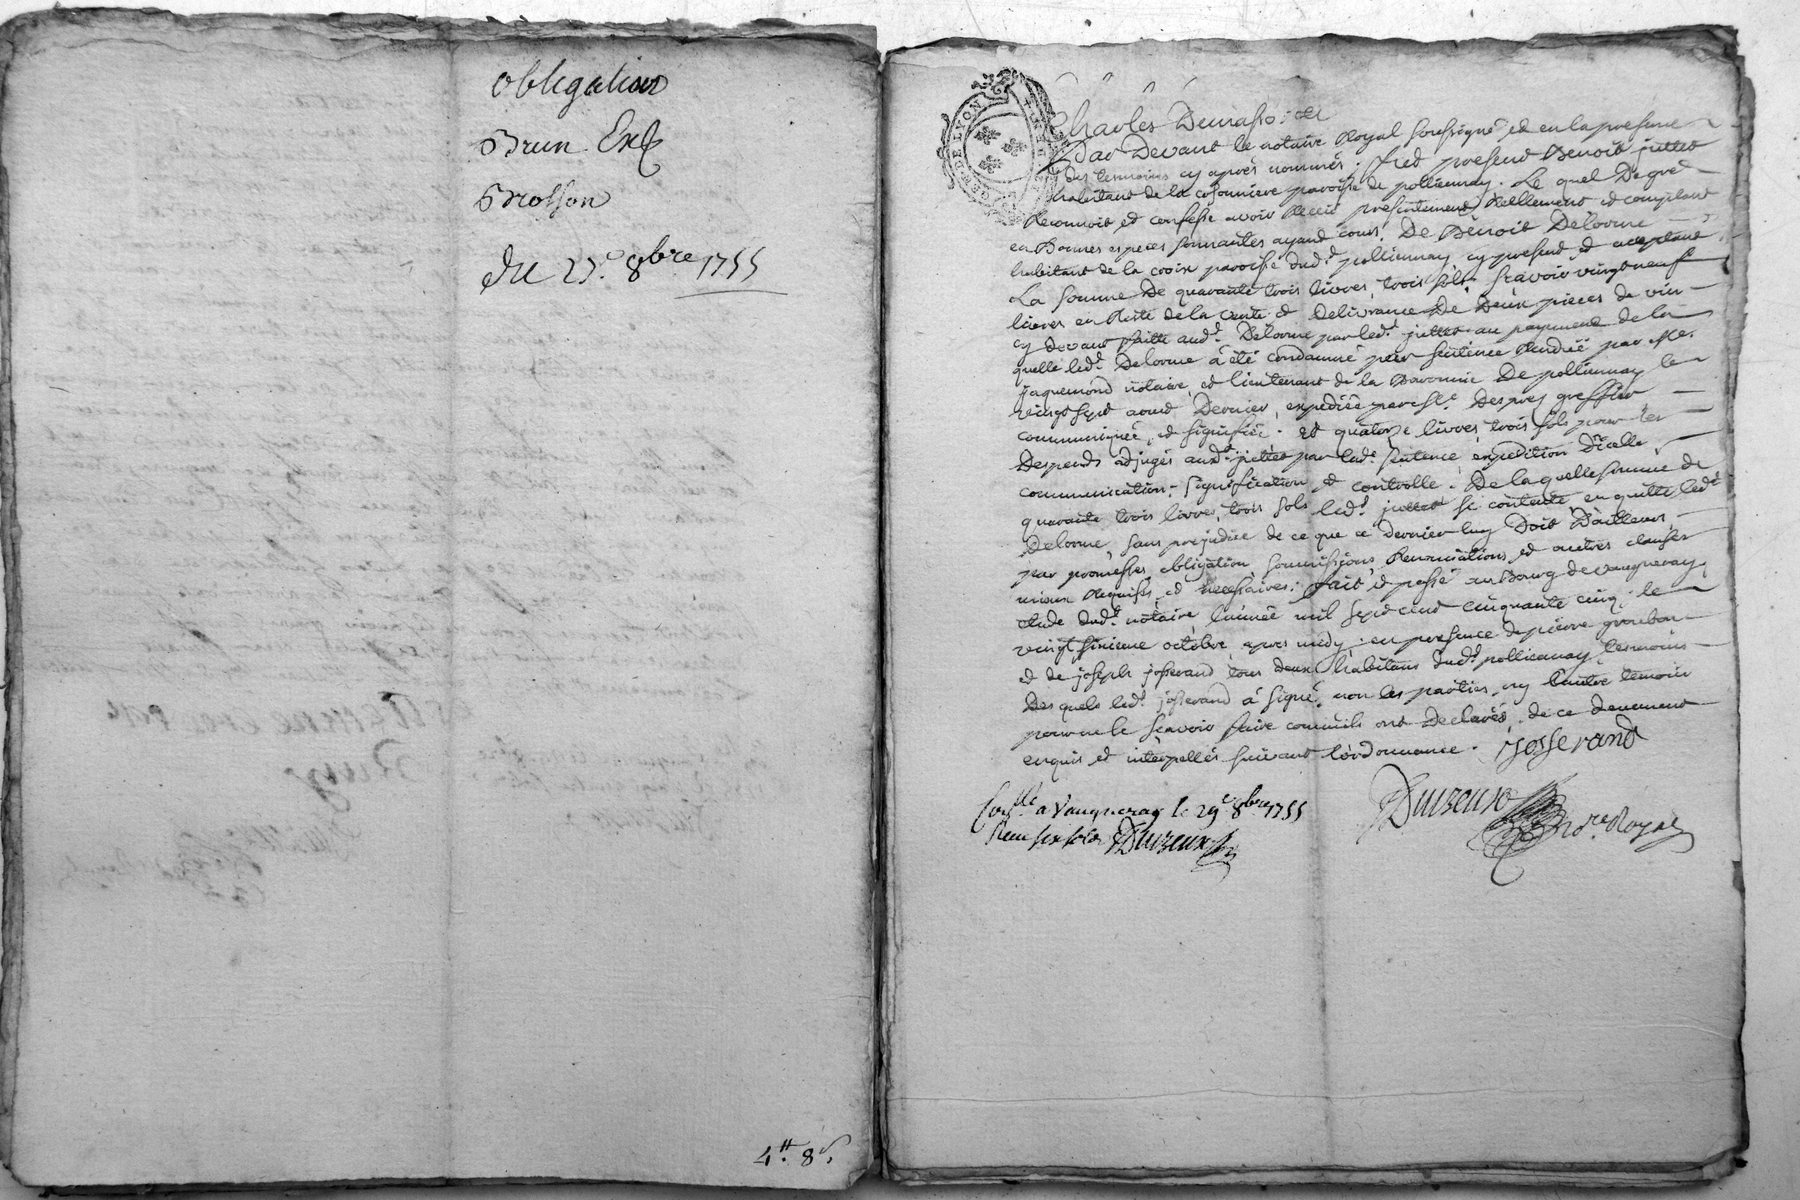 obligation
Brun Exp
Brosson
du 27.e 8bre 1755
4tt. 8s.
GEN. DE LYON
Par Devant le notaire Royal soussigné et en la presence
des tesmoins cy après nommés; fut present Benoit juttet
habitant de la cosonniere paroisse de pollionnay. Le quel De gré
Reconnoit et confesse avoir Receu presentement Reellement et comptant
en Bonnes especes sonnantes ayant cours; De Benoit Delorme
habitant de la croix paroisse dud.t pollionnay cy present et acceptant
La somme De quarante trois livres trois sols; sçavoir vingt neuf
livres en Reste de la vente et Delivrance De Deux pieces de vin
cy Devant faitte aud.t Delorme par led.t juttet au payement de la
quelle led.t Delorme à été condamné par sentence Rendüe par Me.
jaquemond notaire, et lieutenant de la Baronnie De pollionnay le
vingt sept aoust Dernier, expediée par Me. Desprez greffier
communiqué, et signifiée. et quatorze livres trois sols pour les
Despends adjugés aud.t juttet par lad.e sentence expedition D'icelle
communication, signification, et controlle. De laquelle somme de
quarante trois livres trois sols led.t juttet se contente, en quitte led.t
Delorme, sans prejudice de ce que ce Dernier luy Doit D'ailleurs
par promesses obligation, sommissions, Renonciations, et autres clauses
mieux Requises, et necessaires; fait et passé au Bourg de vaugneray
etude dud.t notaire l'année mil sept cent cinquante cinq; le
vingt sixieme octobre après midy; en presence de pierre
et de joseph josserand tous deux habitans dud.t pollionnay tesmoins
Des quels led.t josserand à signé, non les parties, ny l'autre temoin
pour ne le sçavoir faire comm'ils ont Declarés, de ce Deuement
enquis et interpellés suivant l'ordonnance. Josserand
Conllé a Vaugneray le 29e 8bre 1755
Receu six sols Duizeux
Duizeux nore Royal